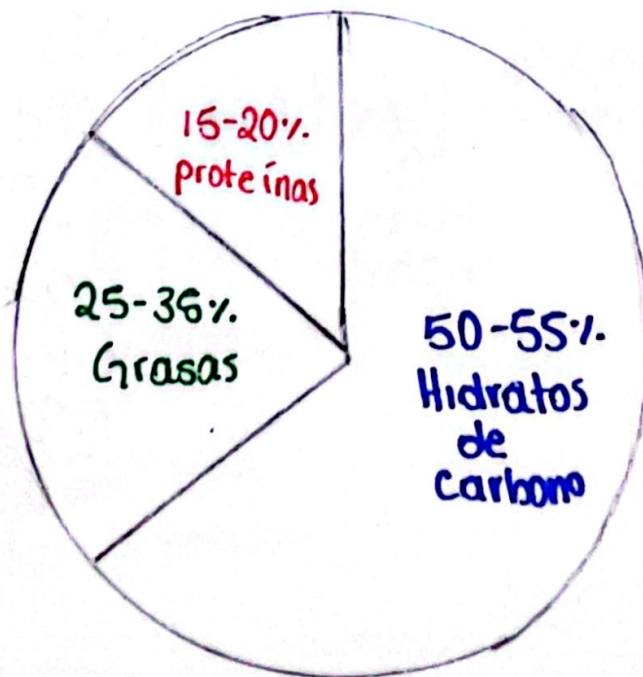 15-20%
proteínas
25-35%
Grasas
50-55%
Hidratos
de
carbono